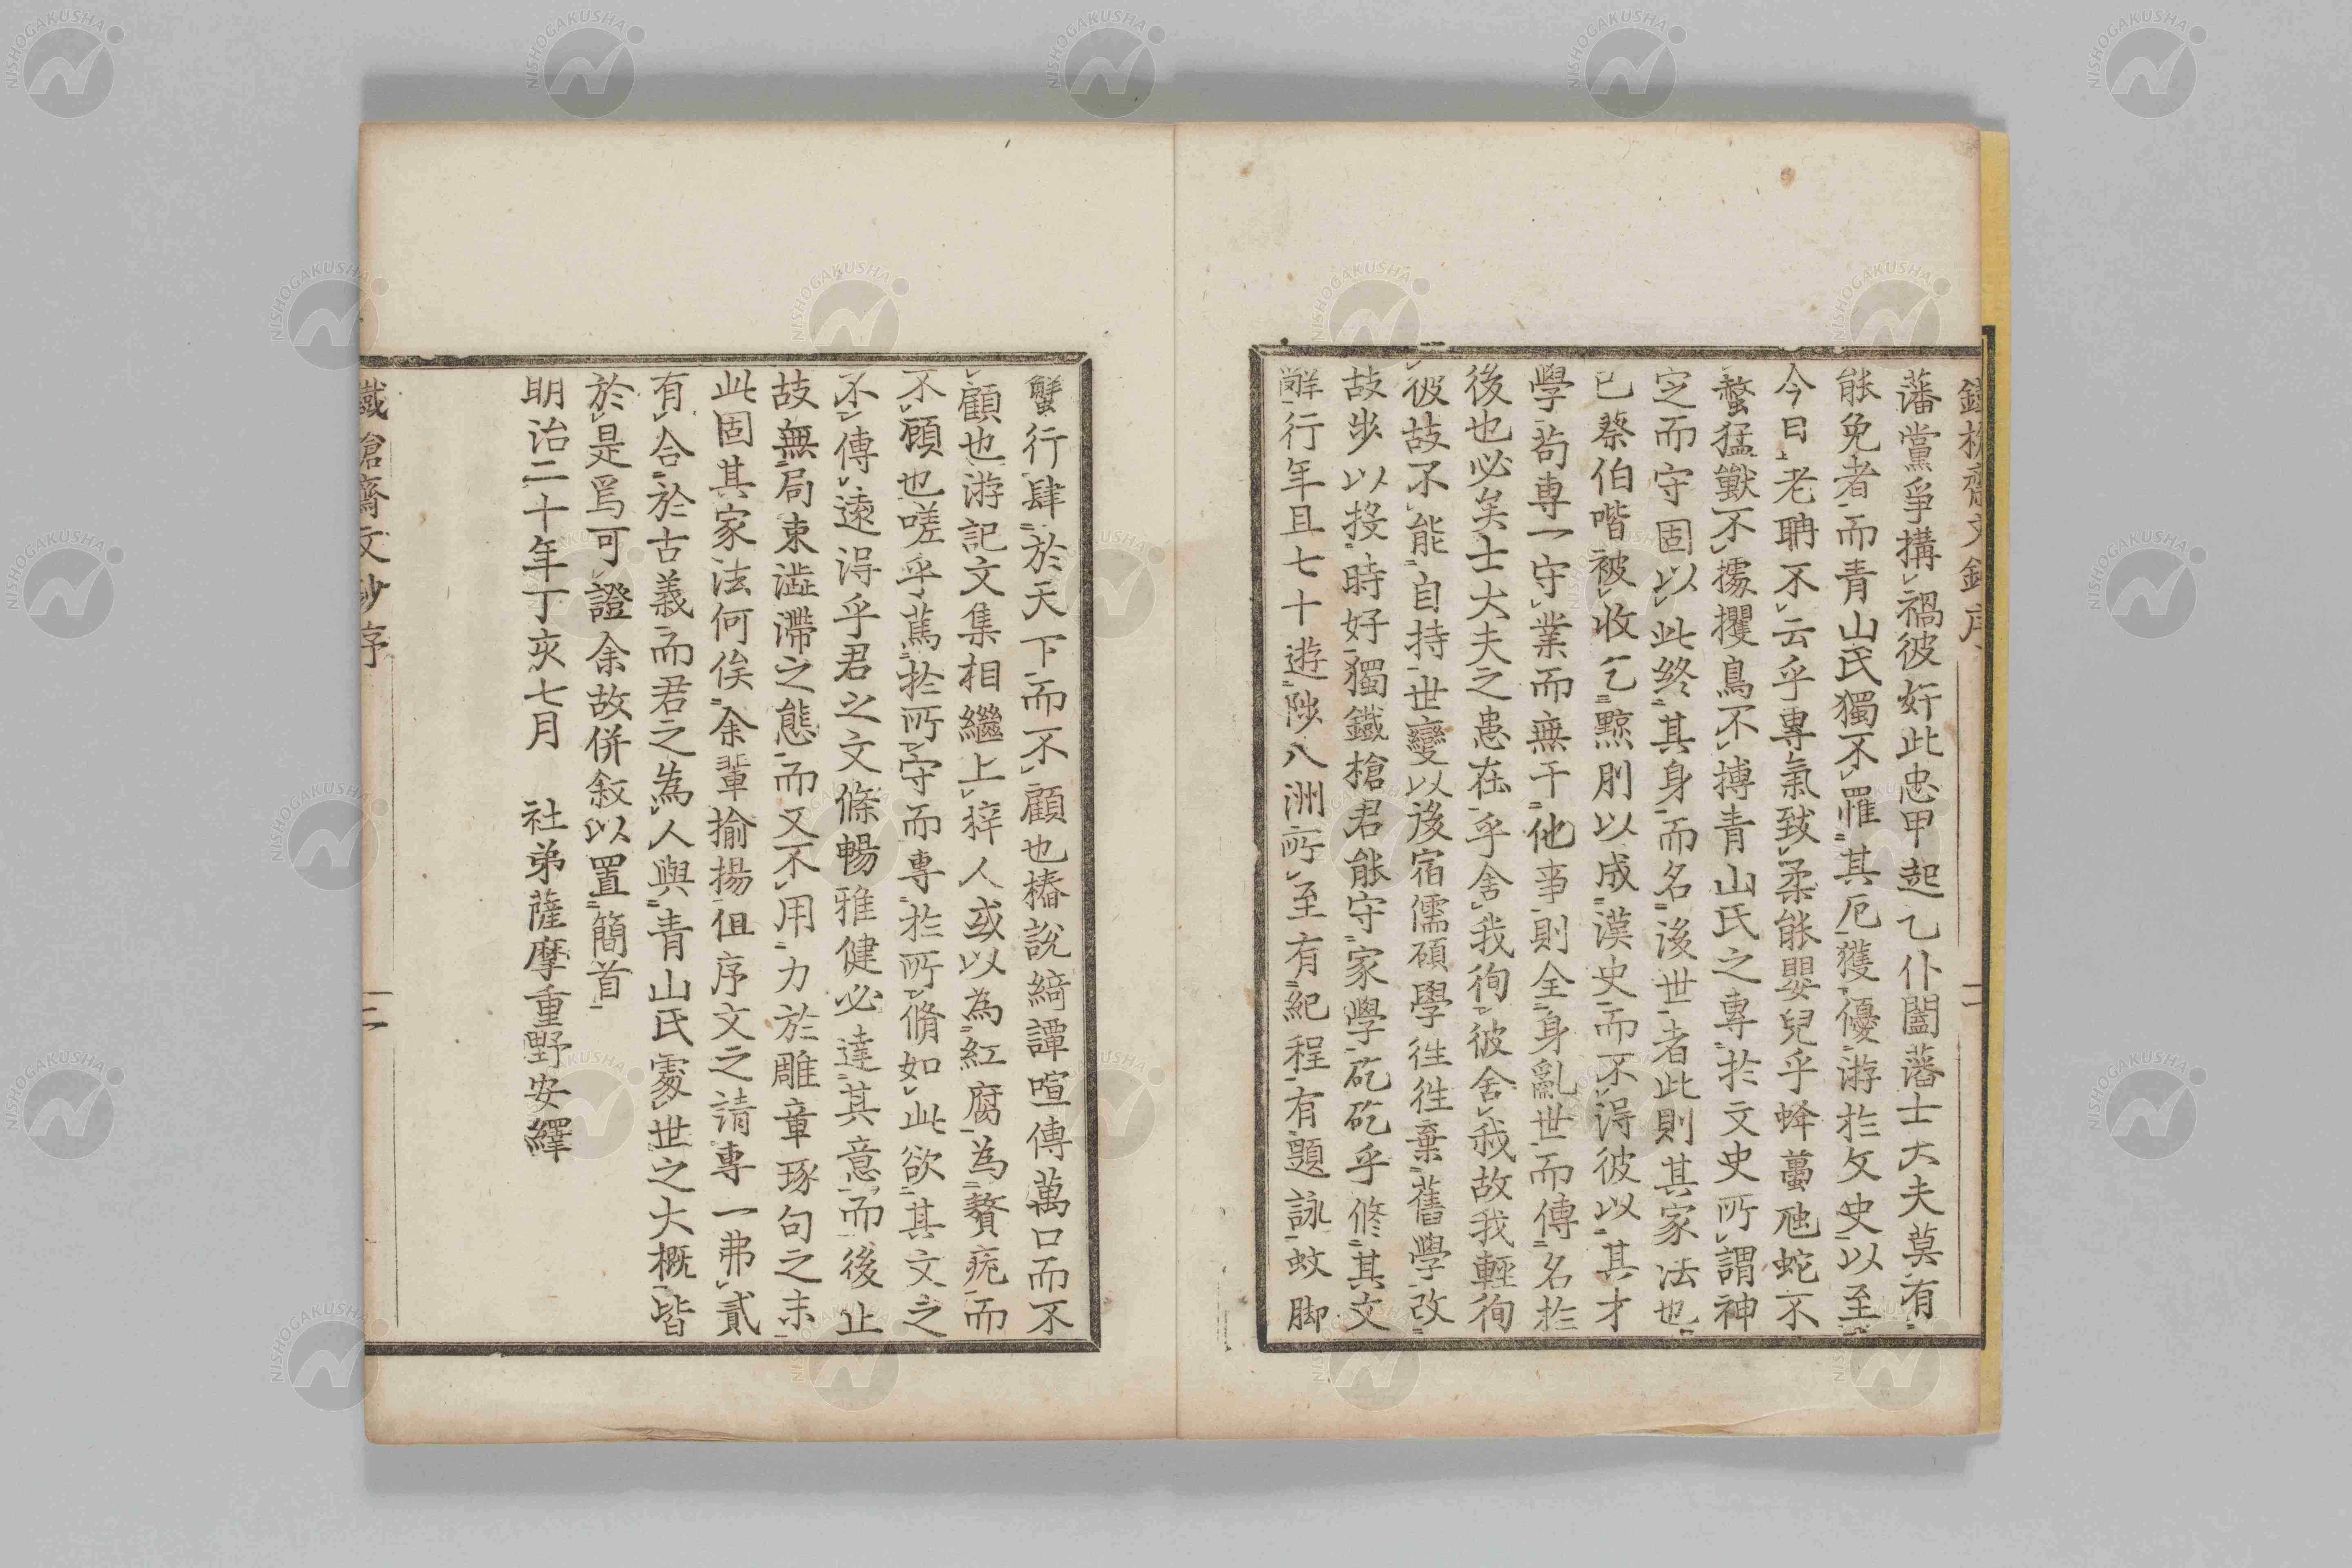 藩黨爭搆禍彼奸此忠甲起乙仆闔藩士大夫莫有
能免者而青山氏獨不罹其厄獲優游於文史以至
今日老聃不云乎專氣致柔能嬰兒乎蜂蠆虺蛇不
螫猛獸不據攫鳥不搏青山氏之專於文史所謂神
定而守固以此終其身而名後世者此則其家法也
已蔡伯喈被收乞黥刖以成漢史而不得彼以其才
學苟專一守業而無干他事則全身亂世而傳名於
後也必矣士大夫之患在乎舍我徇彼舍我故我輕徇
彼故不能自持世變以後宿儒碩學徃徃棄舊學改
故步以投時好獨鐵槍君能守家學矻矻乎修其文
辭行年且七十遊陟八洲所至有紀程有題詠蚊脚
蟹行肆於天下而不顧也樁說綺譚喧傳萬口而不
顧也游記文集相繼上梓人或以為紅腐為贅疣而
不顧也嗟乎篤於所守而專於所脩如此欲其文之
不傳遠得乎君之文條暢雅健必達其意而後止
故無局束澁滯之態而又不用力於雕章琢句之末
此固其家法何俟余輩揄揚但序文之請專一弗貳
有合於古義而君之為人與青山氏處世之大概皆
於是焉可證余故併敘以置簡首
明治二十年丁亥七月　社弟薩摩重野安繹
鐵槍齋文鈔序　二
鐵槍齋文鈔序　三
NISHOGAKUSHA